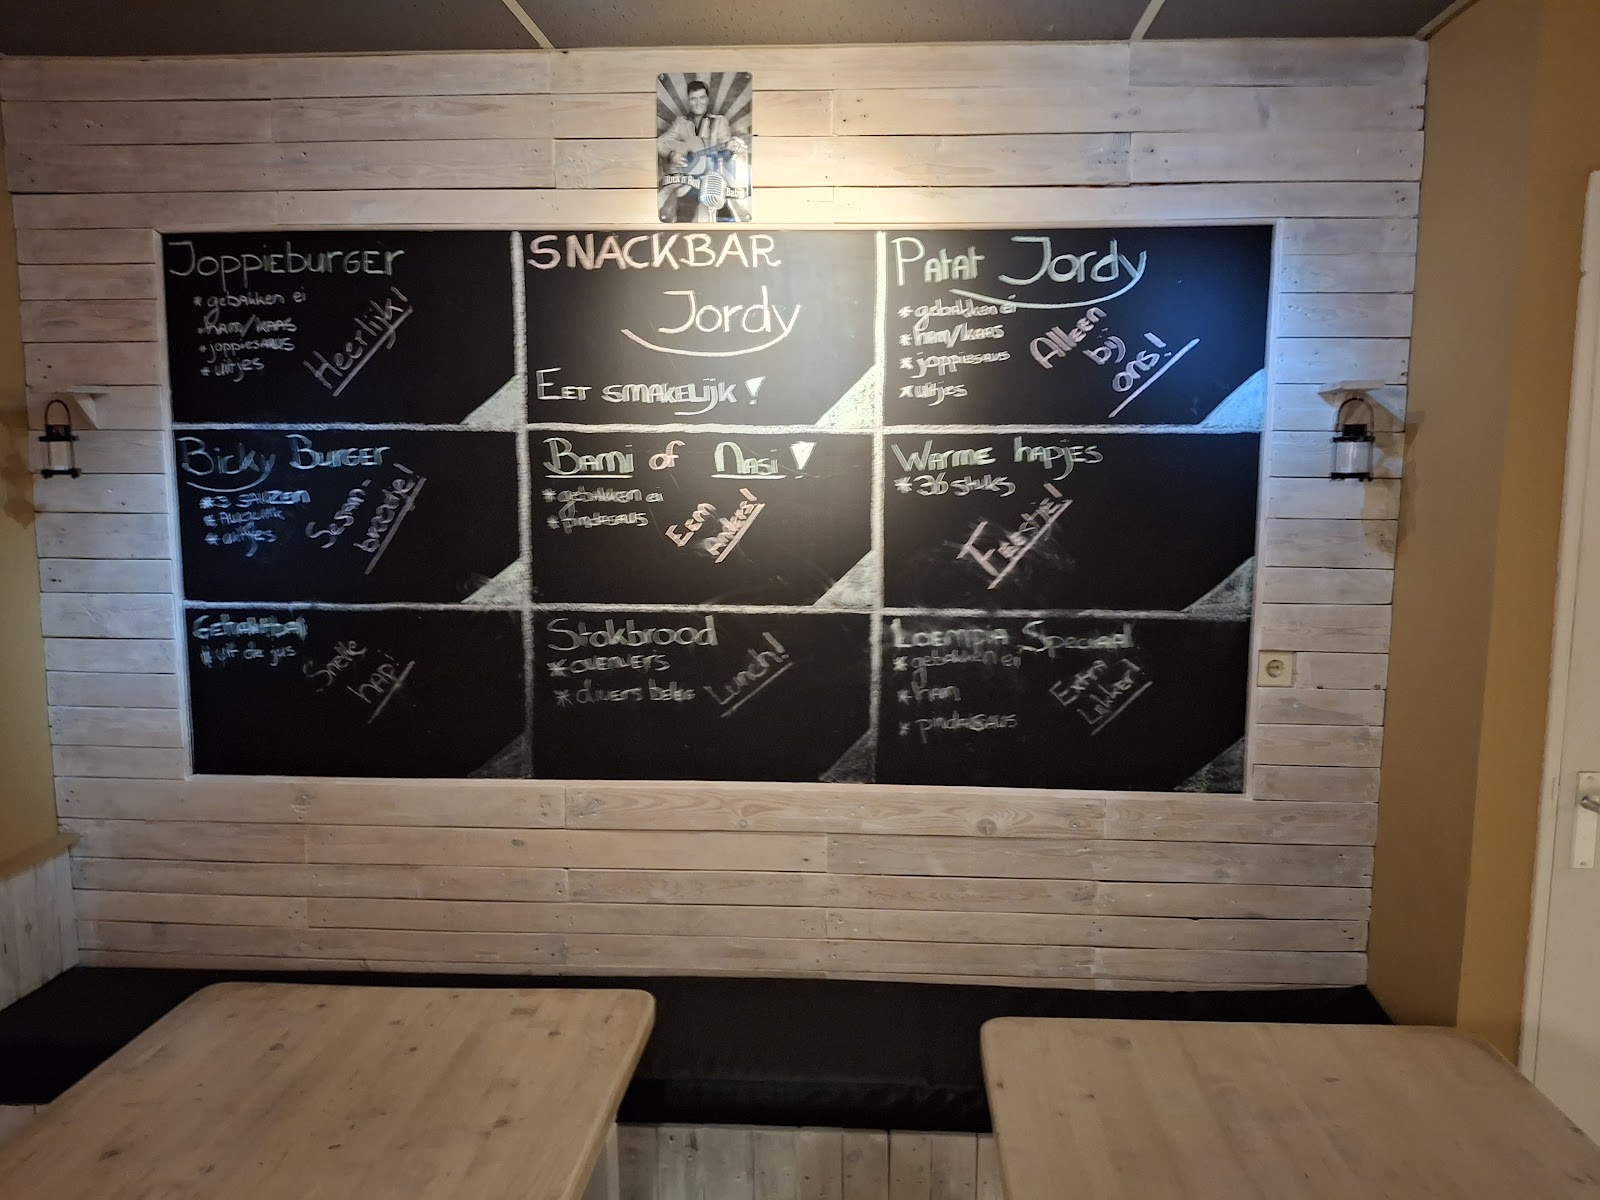 Rock n Roll
JoppieburgEr
* gebakken ei
* HAM/KAAS
* joppiesAUS
* uitjes
Heerlijk!
SNACKBAR
Jordy
EET SMAKELIJK!
Patat Jordy
* gebakken ei
* HAM/KAAS
* joppiesaus
* uitjes
Alleen
bij
ons!
Bicky Burger
* 3 SAUZEN
* Augurk
* uitjes
Sesam-
broodje!
Bami of Nasi!
* gebakken ei
* pindasaus
Eem
Anders!
Warme hapjes
* 36 stuks
Feestje!
Gehaktbal
* uit de jus
Snelle
hap!
Stokbrood
* divers beleg
Lunch!
Loempia Speciaal
* gebakken ei
* HAM
* pindASAUS
Extra
Lekker!